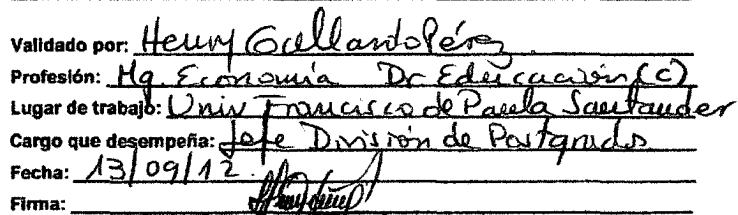 Validado por: Henry Gallardo Pérez
Profesión: Mg. Economía Dr Educación (C)
Lugar de trabajo: Univ Francisco de Paula Santander
Cargo que desempeña: Jefe División de Postgrados
Fecha: 13/09/12.
Firma: